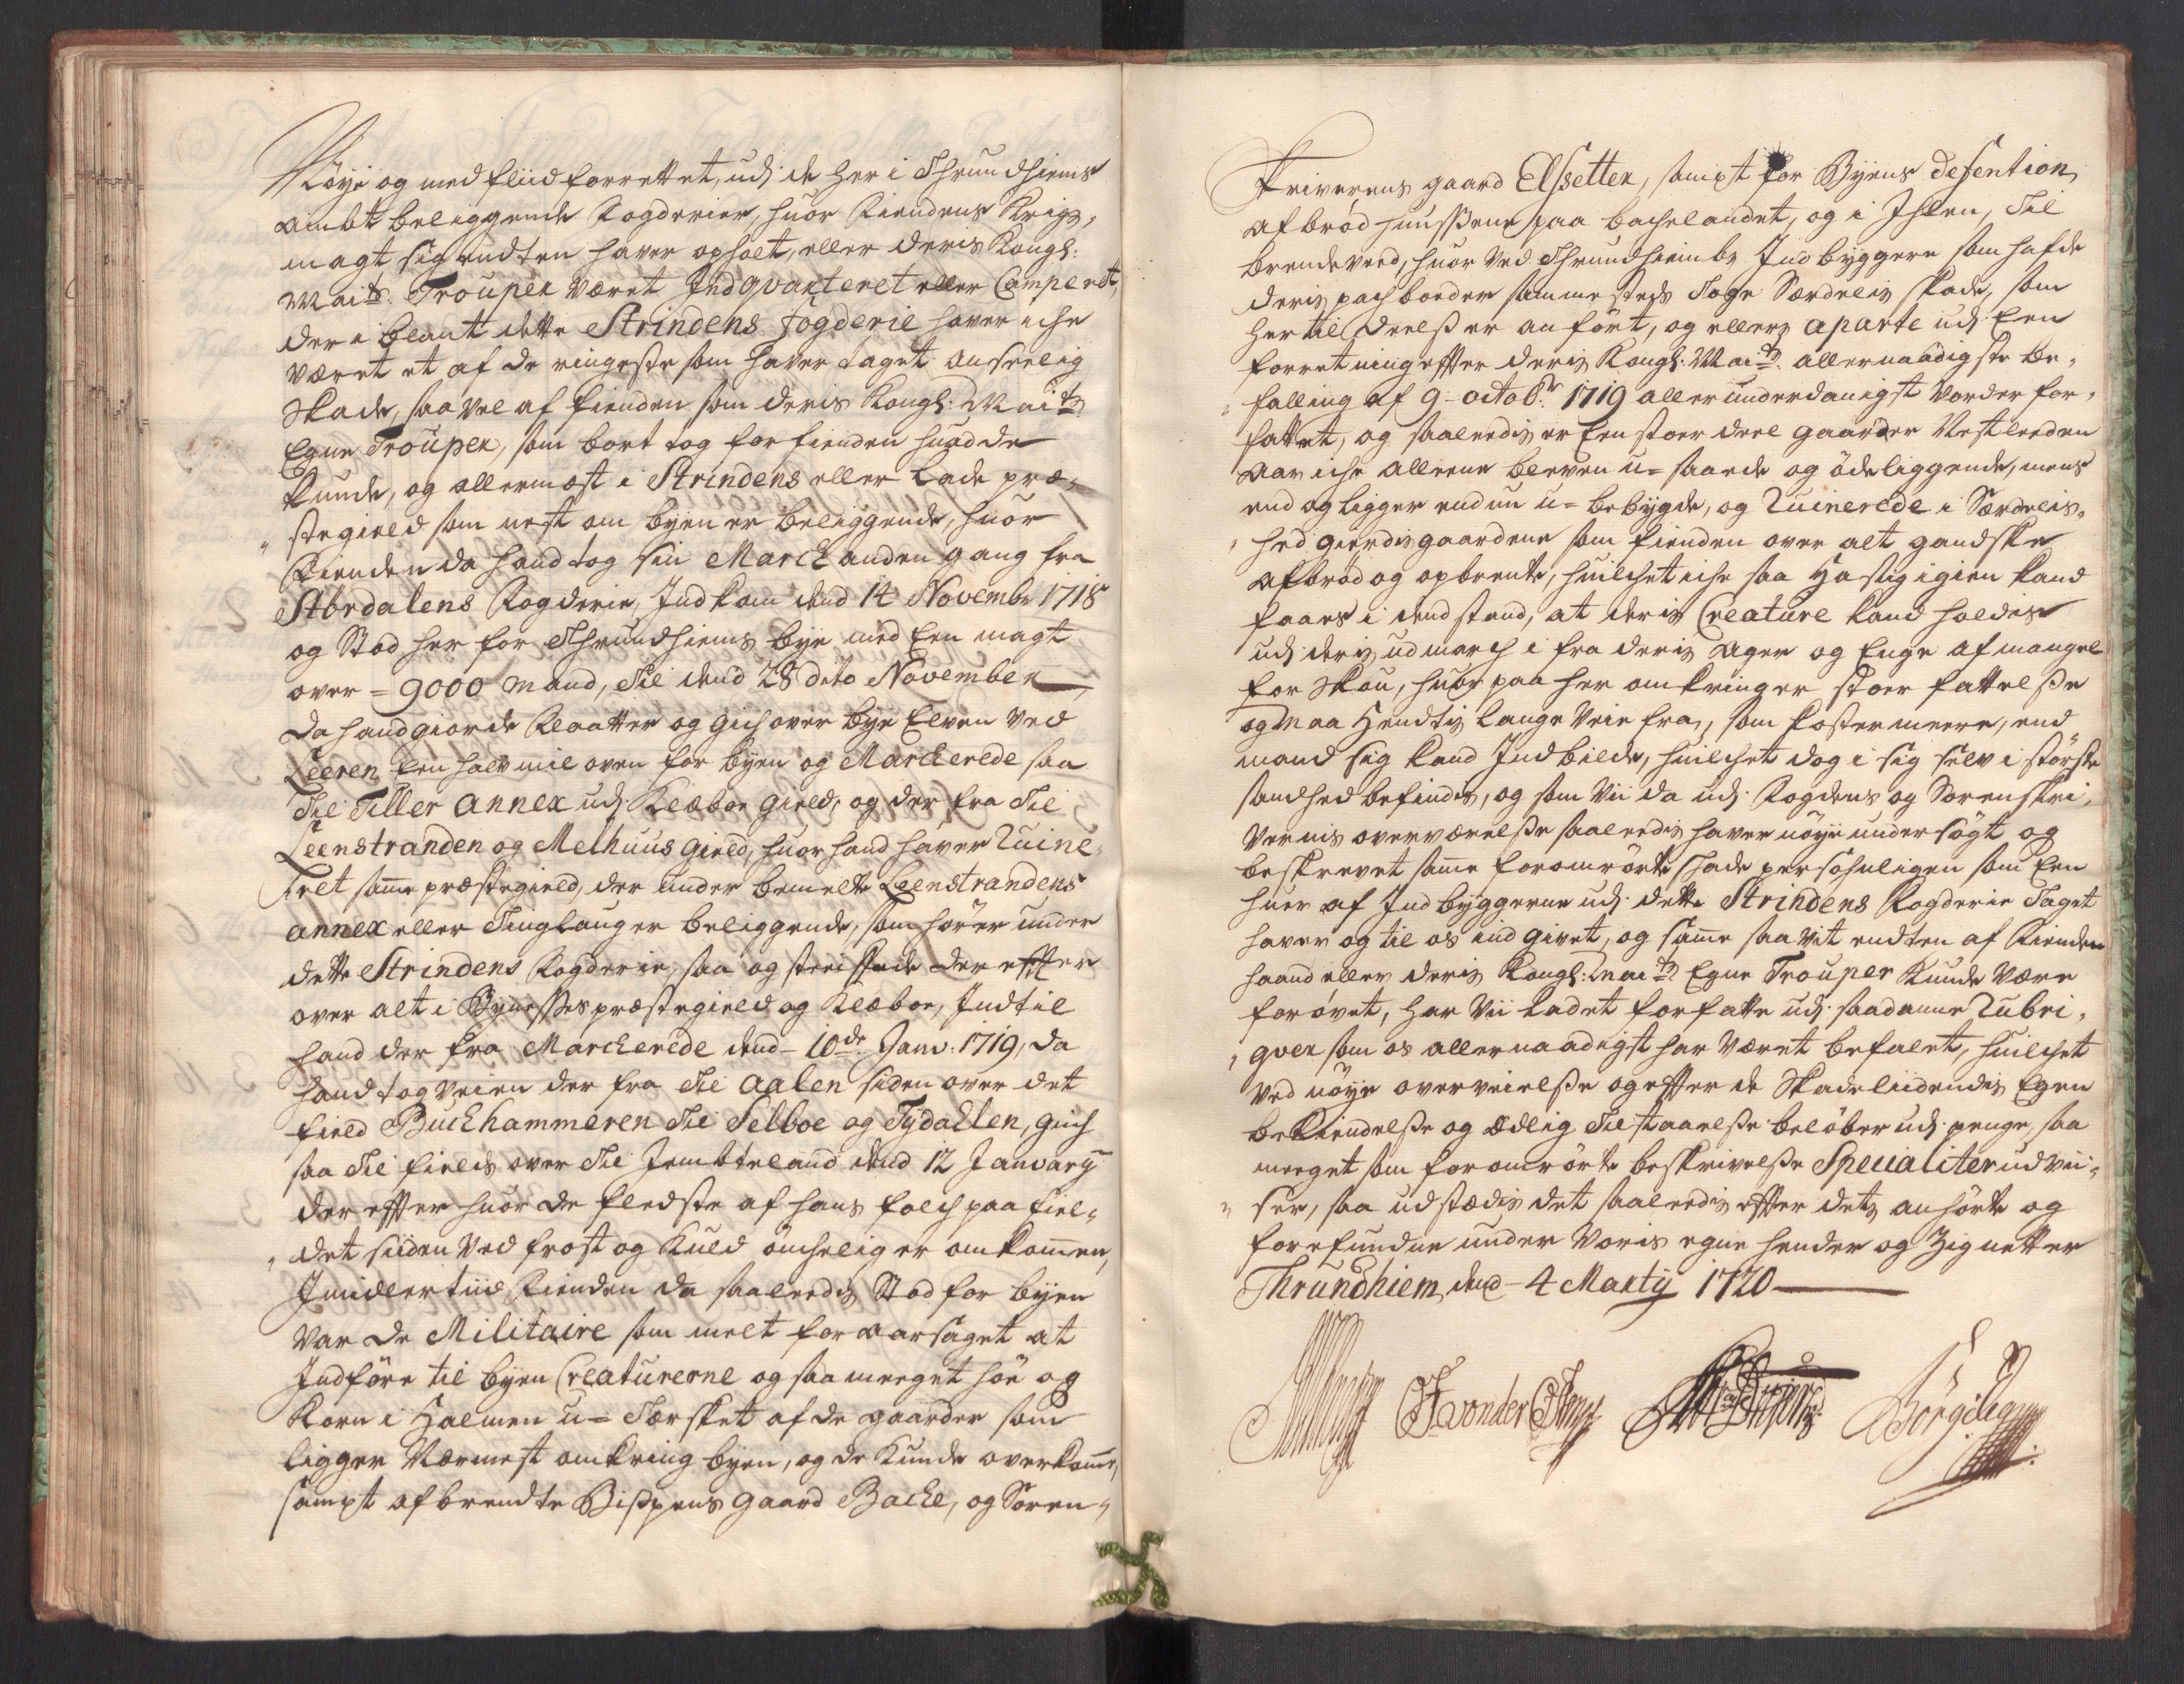 Nöye og med fliid forrettet, udj de her i Thrundhiems
ambt beliggende Fogderier, huor Fiendens Krigs,
magt sig endten haver opholt, eller deris Kongl:
Maits. Trouper været Indqvarteret eller Camperet,
der i blant dette Strindens fogderie haver iche
været et af de ringeste som haver taget anseelig
Skade, saa vel af fienden som deris Kongl: Maits
Egne Trouper, som bort tog for fienden huad de
kunde, og allermæst i Strindens eller Lade præ,
stegield som nest om byen er beliggende, huor
Fienden da hand tog sin March anden gang fra
Stördalens Fogderie, Indkom dend 14 Novembr 1718
og Stod her for Thrundhiems bye med Een magt
over = 9000 mand, Til dend 28 dito November
da hand giorde Flaatter og gich over bye Elven ved
Leeren Een halv miil oven for byen og Marcherede saa
Til Tiller annex udj Klæboe gield, og der fra Til
Leenstranden og Melhuus gield, huor hand haver Ruine,
ret samme præstegield, der under bemelte Leenstrandens
annex eller Tinglaug er beliggende, som hörer under
dette Strindens Fogderie, saa og streiffede der effter
over alt i Bynessets præstegield og Klæboe, Indtil
hand der fra Marcherede dend 10de Janv: 1719, da
hand tog veien der fra Til Aalen siden over det
field Buchhammeren Til Selboe og Tÿdahlen, gich
saa Til fields over Til Jembteland dend 12 Januarÿ
der effter huor de fleeste af hans folch paa fiel,
det siden ved frost og Kuld ömchelig er omkommen,
Imidlertiid Fienden da saaleedis Stod for byen
var de Militaire som melt foraarsaget at
Indföre til byen Creaturerne og saa meeget höe og
Korn i Halmen u= Tærsket af de gaarder som
ligger Nærmest omkring byen, og de kunde overkomme,
sampt afbrendte Bispens gaard Bache, og Soren,
skriverens gaard Elssetter, sampt for Byens defention
afbröd huussene paa bachelandet, og i Ihlen, Til
brendeveed, huor ved Thrundhiembs Indbyggere som hafde
deris pachboeder samme steds Toge Særdelis skade, som
her til deelss er anfört, og ellers aparte udj Een
forretning effter deris Kongl: Maits. allernaadigste be,
falling af 9 octobr. 1719 allerunderdanigst vorder for,
fattet, og saaleedis er Een stoer deel gaarder Nestleeden
aar iche alleene bleven u= saaede og ödeliggende, mens
end og ligger endnu u= bebygde, og Ruinerede i Særdelis,
hed gierdisgaardene som fienden over alt gandske
afbröd og opbrente, huilchet iche saa Hastig igien kand
faaes i dend stand, at deris Creature kand holdes
udj deris udmarch i fra deris ager og Enge af mangel
for Skou, huor paa her omkringer stoer fattelsse
og maa Hendtis lange veie fra, som koster meere, end
mand sig kand Indbilde, huilchet dog i sig selv i störste
sandhed befindes, og som Vii da udj Fogdens og Sorenskri,
vernis overværelsse saaleedis haver nöye undersögt og
beskrevet samme foromrörte skade persohnligen som Een
huer af Indbyggerne udj dette Strindens Fogderie Taget
haver og til os indgivet, og samme saa vit endten af Fiendens
haand eller deris Kongl: Maits Egne Trouper kunde være
forövet, Har Vii Ladet forfatte udj saadanne Rubri,
qver som os allernaadigst har været befalet, huilchet
ved nöye overveielsse og effter de Skadeliidendes Egen
bekiendelsse og ædelig Tilstaaelsse belöber udj penge, saa
meeget som foromrörte beskrivelsse Specialiter udvii,
ser, saa udstædis det saaleedis effter dets anhörte og
forefundne under Voris egne hender og Zignetter
Thrundhiem, dend 4 Martÿ 1720
von der Osten